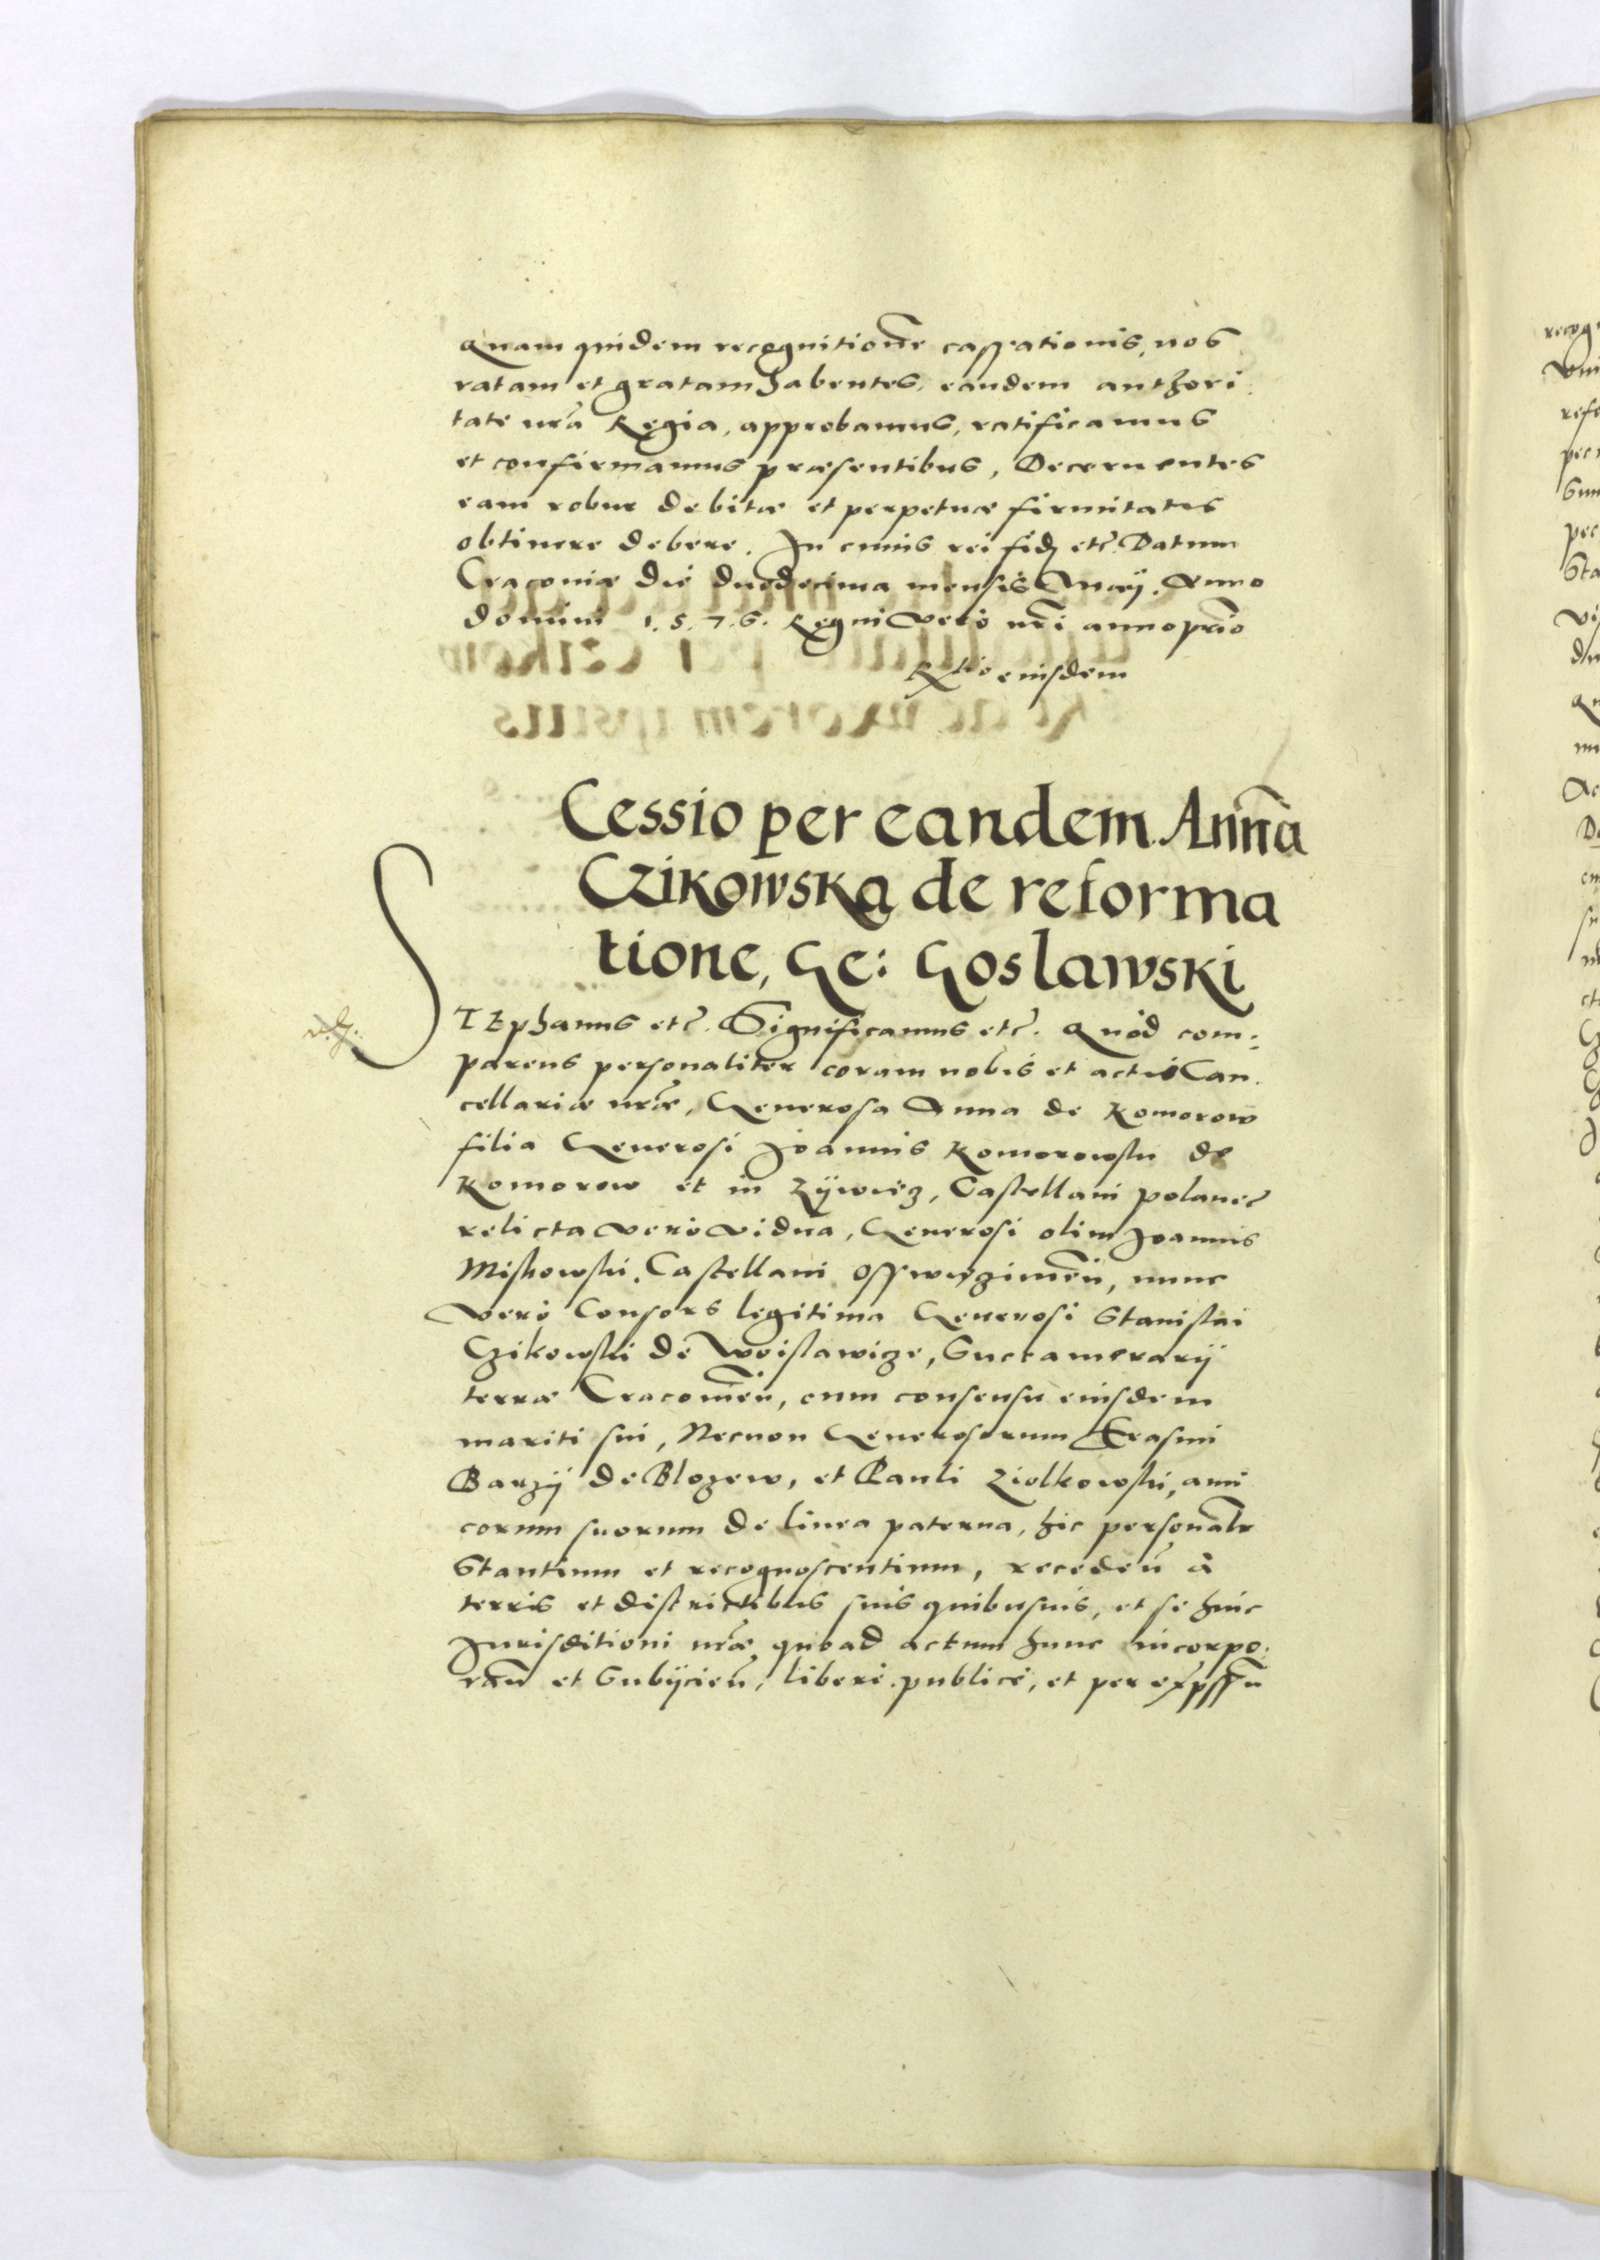 Quam quidem recognitione cassationis, nos
ratam et gratam habentes, eandem authori
tate nr̃a Regia, approbamus, ratificamus
et confirmamus præsentibus, Decernentes
eam robur debitæ et perpetuæ firmitatis
obtinere debere. In cuius rei fid etc̃. Datum
Cracoviæ die duodecima mensis Maij. Anno
domini 1.5.7.6. Regni vero nr̃i anno prĩo
Rtio eiusdem
Cessio per eandem Annã
Czikowska de reforma
tione, Ge: Goslawski
STEphanus etc̃. Significamus etc̃. Quod com:
parens personaliter coram nobis et actis Can
cellariæ nr̃æ, Generosa Anna de Komorow
filia Generosi Joannis Komorowski de
Komorow et in Zÿwiecz, Castellani polanec̃
relicta vero vidua, Generosi olim Joannis
Miskowski, Castellani Osswieczimeñ, nunc
vero Consors legitima Generosi Stanislai
Czikowski de Woislawicze, Succamerarij
terræ Cracovieñ, cum consensu eiusdem
mariti sui, Necnon Generosorum Erasmi
Barzij de Blozew, et Pauli Ziolkowski, ami
corum suorum de linea paterna, hic personalr̃
Stantium et recognoscentium, recedeñ à
terris et districtibus suis quibusuis, et se huic
Jurisditioni nr̃æ quoad actum hunc incorpo:
rañ et Subijcieñ, libere publice, et per exp̃ssũ